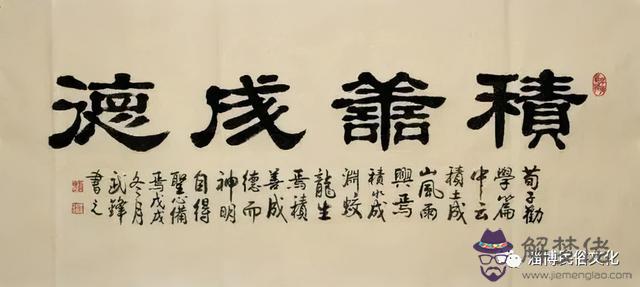 積善成德
荀子勸
學篇
中云
積土成
山風雨
興焉
積水成
淵蛟
龍生
焉積
善成
德而
神明
自得
聖心備
焉戊戌
冬月
武鋒
書之
解梦佬
淄博民俗文化